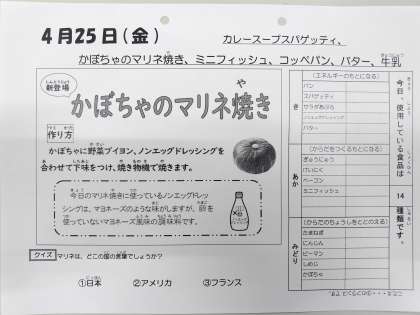 4月25日(金)
カレースープスパゲッティ、
かぼちゃのマリネ焼き、ミニフィッシュ、コッペパン、バター、牛乳
新登場
かぼちゃのマリネ焼き
作り方
かぼちゃに野菜ブイヨン、ノンエッグドレッシングを
合わせて下味をつけ、焼き物機で焼きます。
今日のマリネ焼きに使っているノンエッグドレッ
シングは、マヨネーズのような味がしますが、卵を
使っていないマヨネーズ風味の調味料です。
クイズ
マリネは、どこの国の言葉でしょうか?
①日本 ②アメリカ ③フランス
今日、使用している食品は
14
種類です。
き
(エネルギーのもとになる)
パン
スパゲティ
サラダあぶら
ノンエッグドレッシング
バター
あか
(からだをつくるもとになる)
ぎゅうにゅう
けいにく
ベーコン
ミニフィッシュ
みどり
(からだのちょうしをととのえる)
たまねぎ
にんじん
ピーマン
しめじ
かぼちゃ